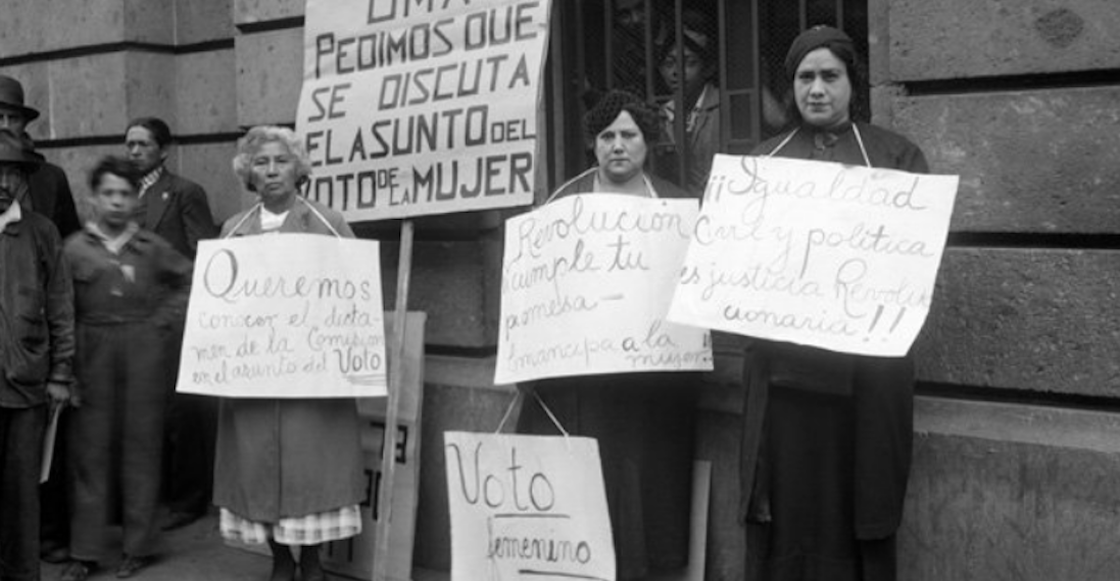 PEDIMOS QUE
SE DISCUTA
EL ASUNTO DEL
VOTO DE LA MUJER
Queremos
conocer el dicta-
men de la Comision
en el asunto del Voto
Revolución
cumple tu
promesa—
Emancipa a la
mujer!!
Voto
femenino
¡¡Igualdad
Civil y política
es justicia Revolu
cionaria!!